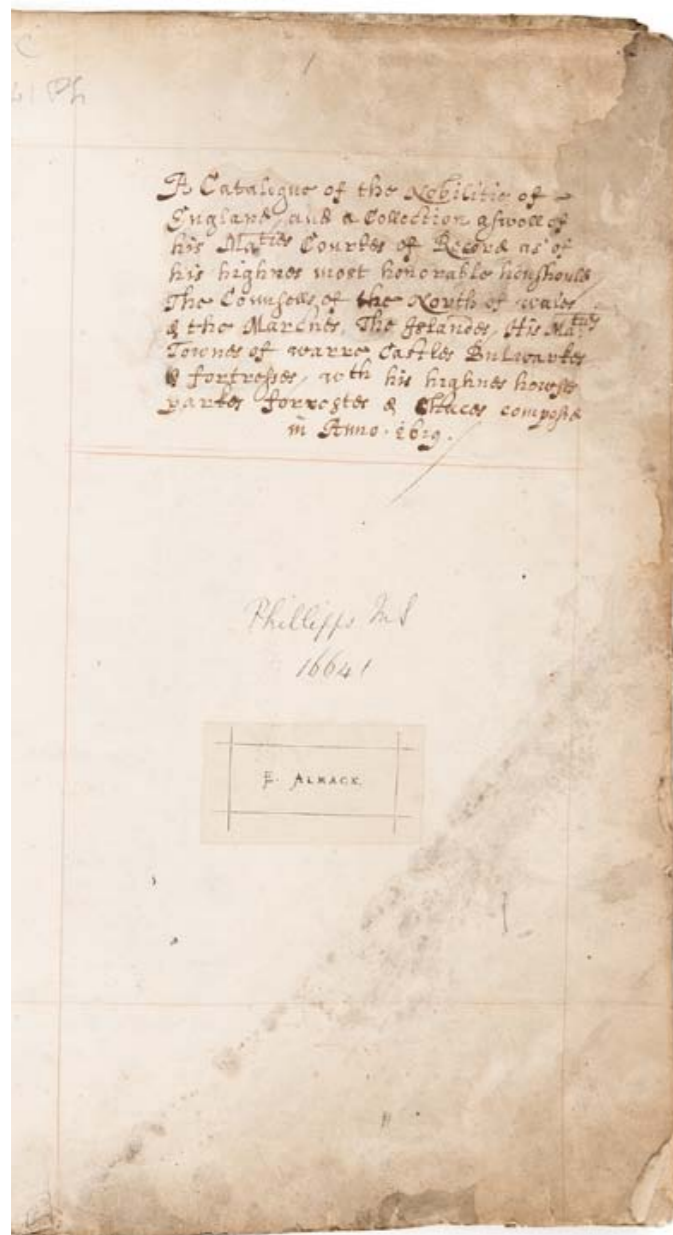 A Catalogue of the Nobilitie of
England, and a Collection aswell of
his Ma^ties Courtes of Record as of
his highnes most honorable houshould
The Counsells, of the North of wales
& the Marches, The Islandes, His Ma^ties
Townes of warre, Castles Bulwarkes
& fortresses, w^th his highnes howses
parkes forrestes & Chaces composed
in Anno. 1619.
Phillipps MS
16641
E. ALMACK.